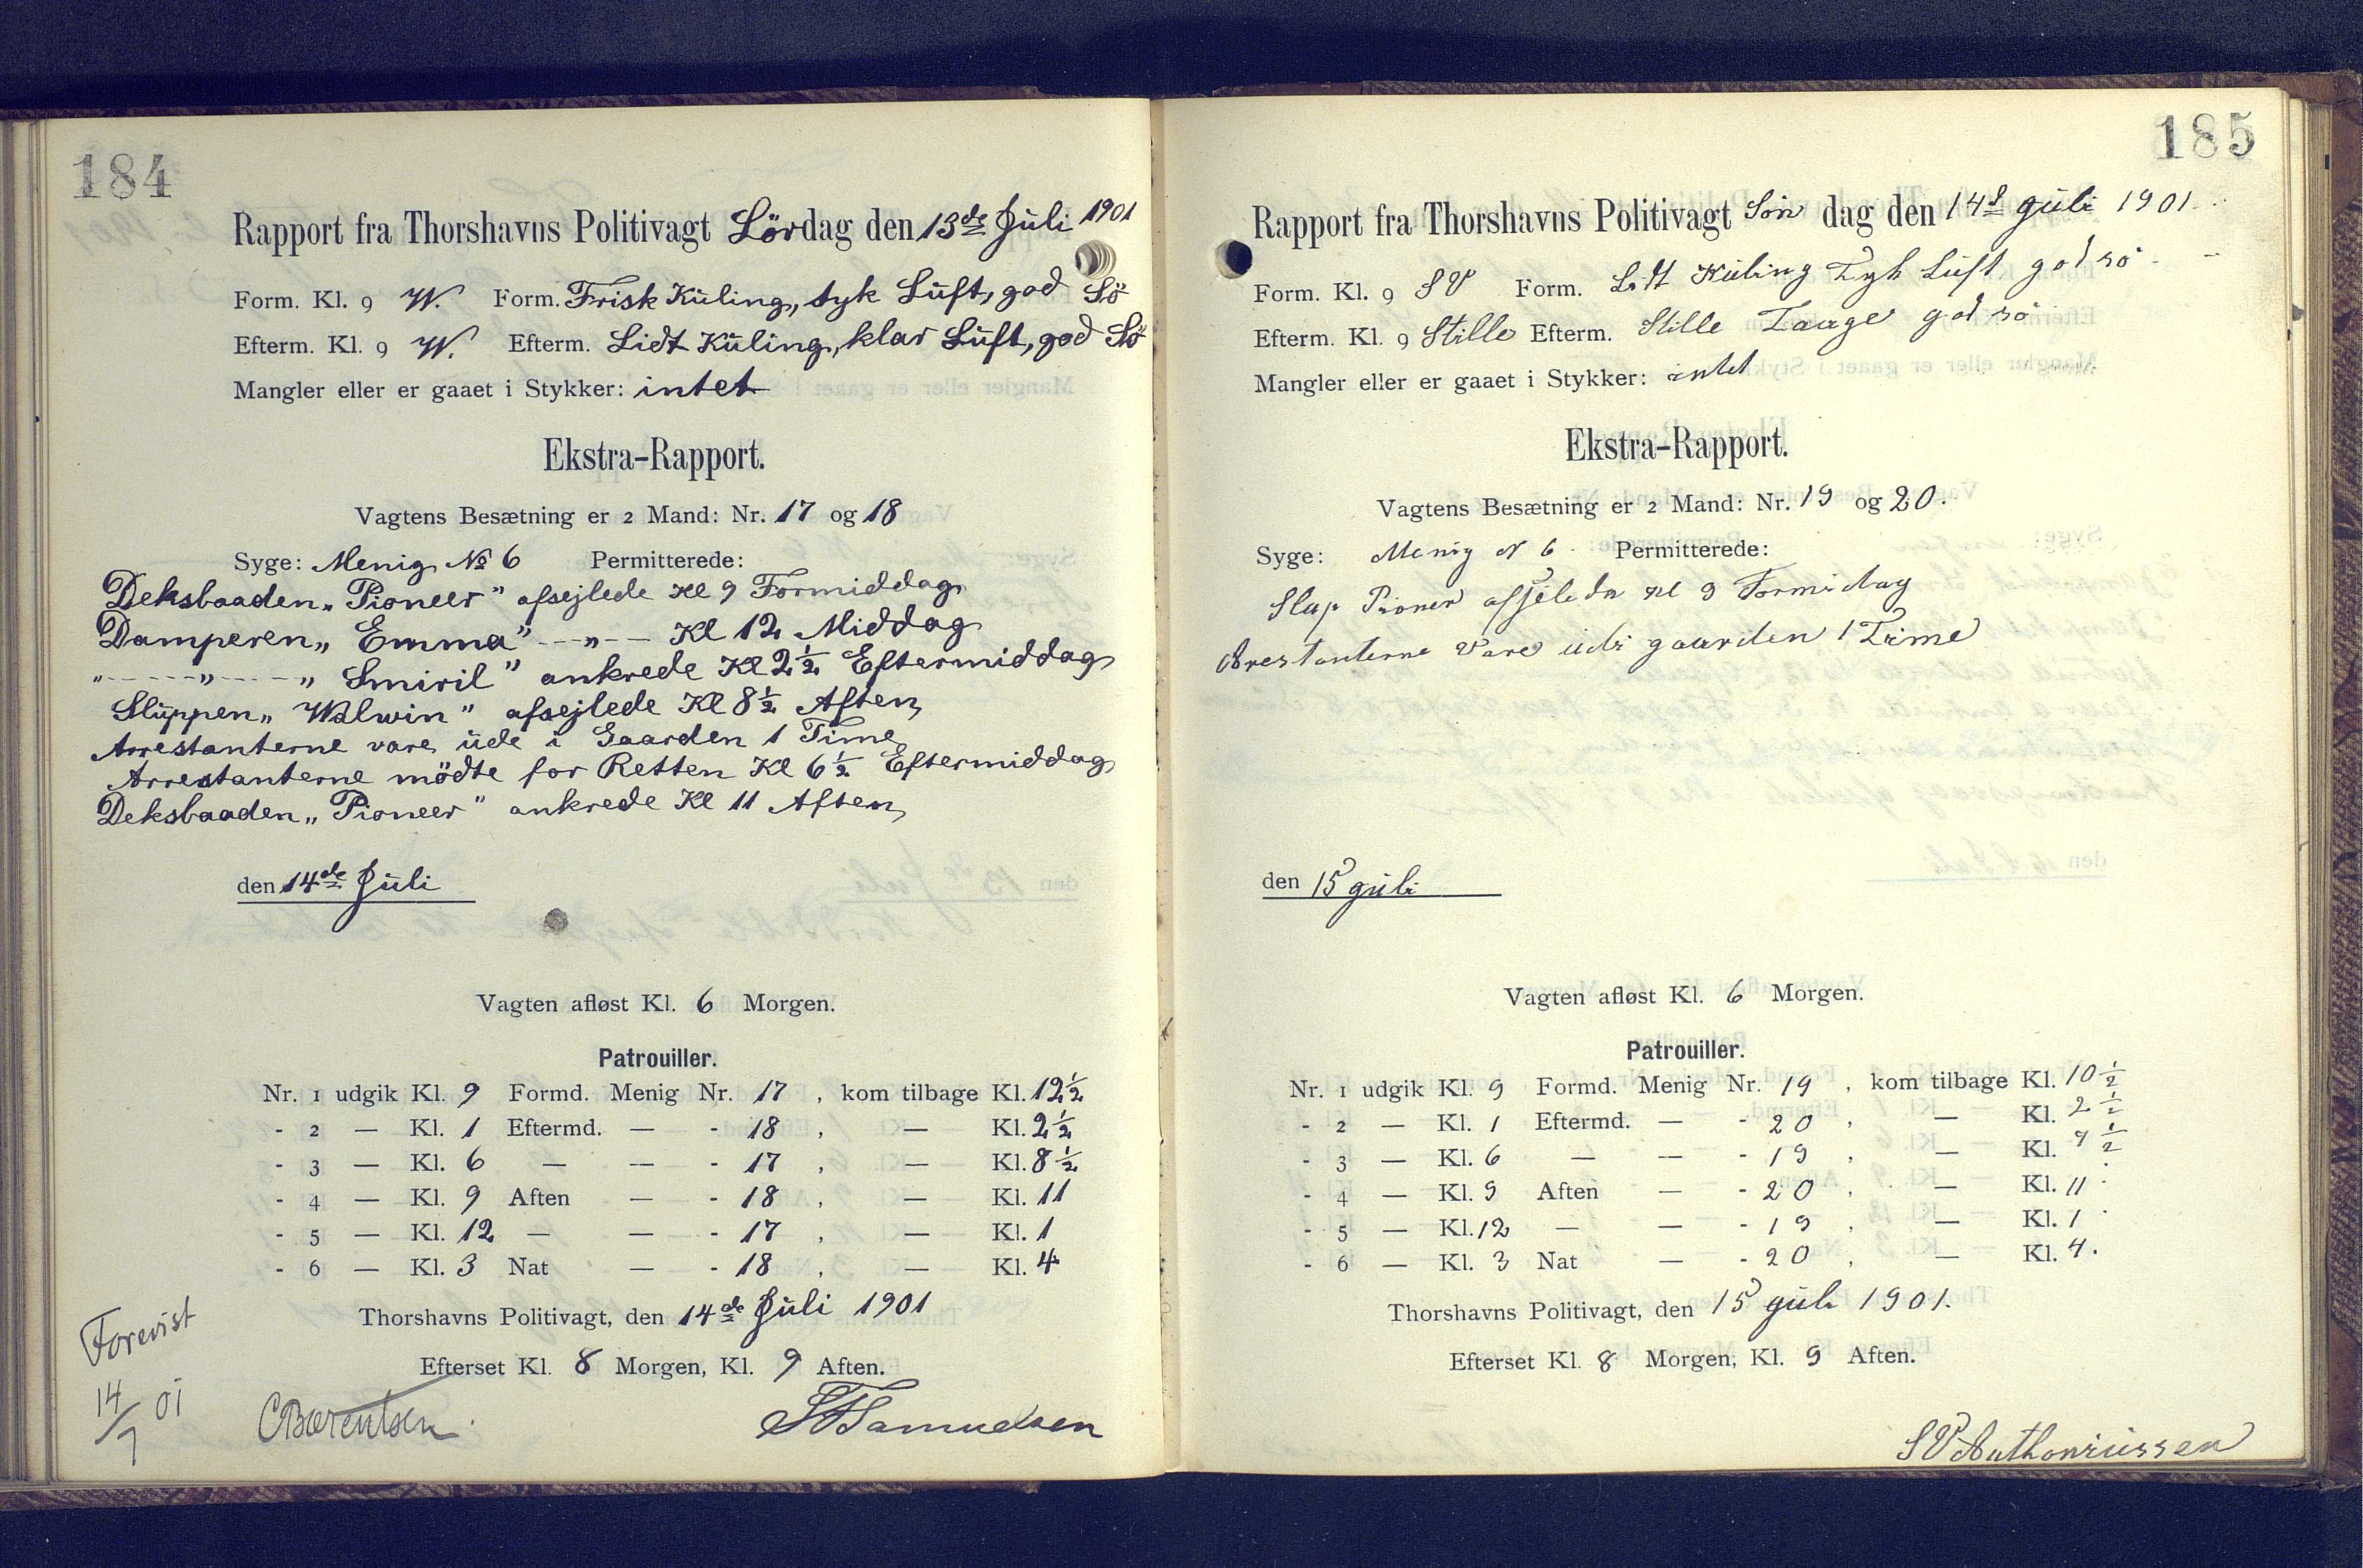 184
Rapport fra Thorshavns Politivagt Lördag den 13de Juli 1901
Form. Kl. 9 W. Form. Frisk Küling, tyk Lüft, god Sö
Efterm. Kl. 9 W. Efterm. Lidt Küling, klar Lüft, god Sö
Mangler eller er gaaet i Stykker: intet
Ekstra-Rapport.
Vagtens Besætning er 2 Mand: Nr. 17 og 18
Syge: Menig № 6 Permitterede:
Deksbaaden „Pioneer" afsejlede Kl 9 Formiddag
Damperen „Emma" --„-- Kl 12 Middag
"----"----" Smiril" ankrede Kl 2½ Eftermiddag
Slüppen „Walwin" afsejlede Kl 8½ Aften
Arrestanterne vare üde i Gaarden 1 Time
Arrestanterne mödte for Retten Kl 6½ Eftermiddag
Deksbaaden „Pioneer" ankrede Kl 11 Aften
den 14de Juli
Vagten afløst Kl. 6 Morgen.
Patrouiller.
Nr. 1 udgik Kl. 9 Formd. Menig Nr. 17, kom tilbage Kl. 12½
- 2 — Kl. 1 Eftermd. — - 18, — Kl. 2½
- 3 — Kl. 6 — — - 17, — Kl. 8½
- 4 — Kl. 9 Aften — - 18, — Kl. 11
- 5 — Kl. 12 — — - 17, — Kl. 1
- 6 — Kl. 3 Nat — - 18, — Kl. 4
Thorshavns Politivagt, den 14de Jüli 1901
Efterset Kl. 8 Morgen, Kl. 9 Aften.
Forevist
14/7 01
CBærentsen.
Samuelsen
185
Rapport fra Thorshavns Politivagt Sön dag den 14d Jüli 1901
Form. Kl. 9 SV Form. Lidt Küling Tyk Lüft god sö
Efterm. Kl. 9 Stille Efterm. Stille Taage god sö
Mangler eller er gaaet i Stykker: intet
Ekstra-Rapport.
Vagtens Besætning er 2 Mand: Nr. 19 og 20.
Syge: Menig N 6. Permitterede:
Slup Pioner afsjelede Kl 9 Formidag
Arestanterne vare üdi gaarden 1 Time
den 15 Jüli
Vagten afløst Kl. 6 Morgen.
Patrouiller.
Nr. 1 udgik Kl. 9 Formd. Menig Nr. 19, kom tilbage Kl. 10½
- 2 — Kl. 1 Eftermd. — - 20, — Kl. 2½
- 3 — Kl. 6 — — - 19, — Kl. 7½
- 4 — Kl. 9 Aften — - 20, — Kl. 11
- 5 — Kl. 12 — — - 19, — Kl. 1
- 6 — Kl. 3 Nat — - 20, — Kl. 4.
Thorshavns Politivagt, den 15 Jüli 1901.
Efterset Kl. 8 Morgen, Kl. 9 Aften.
SVAnthoniüssen